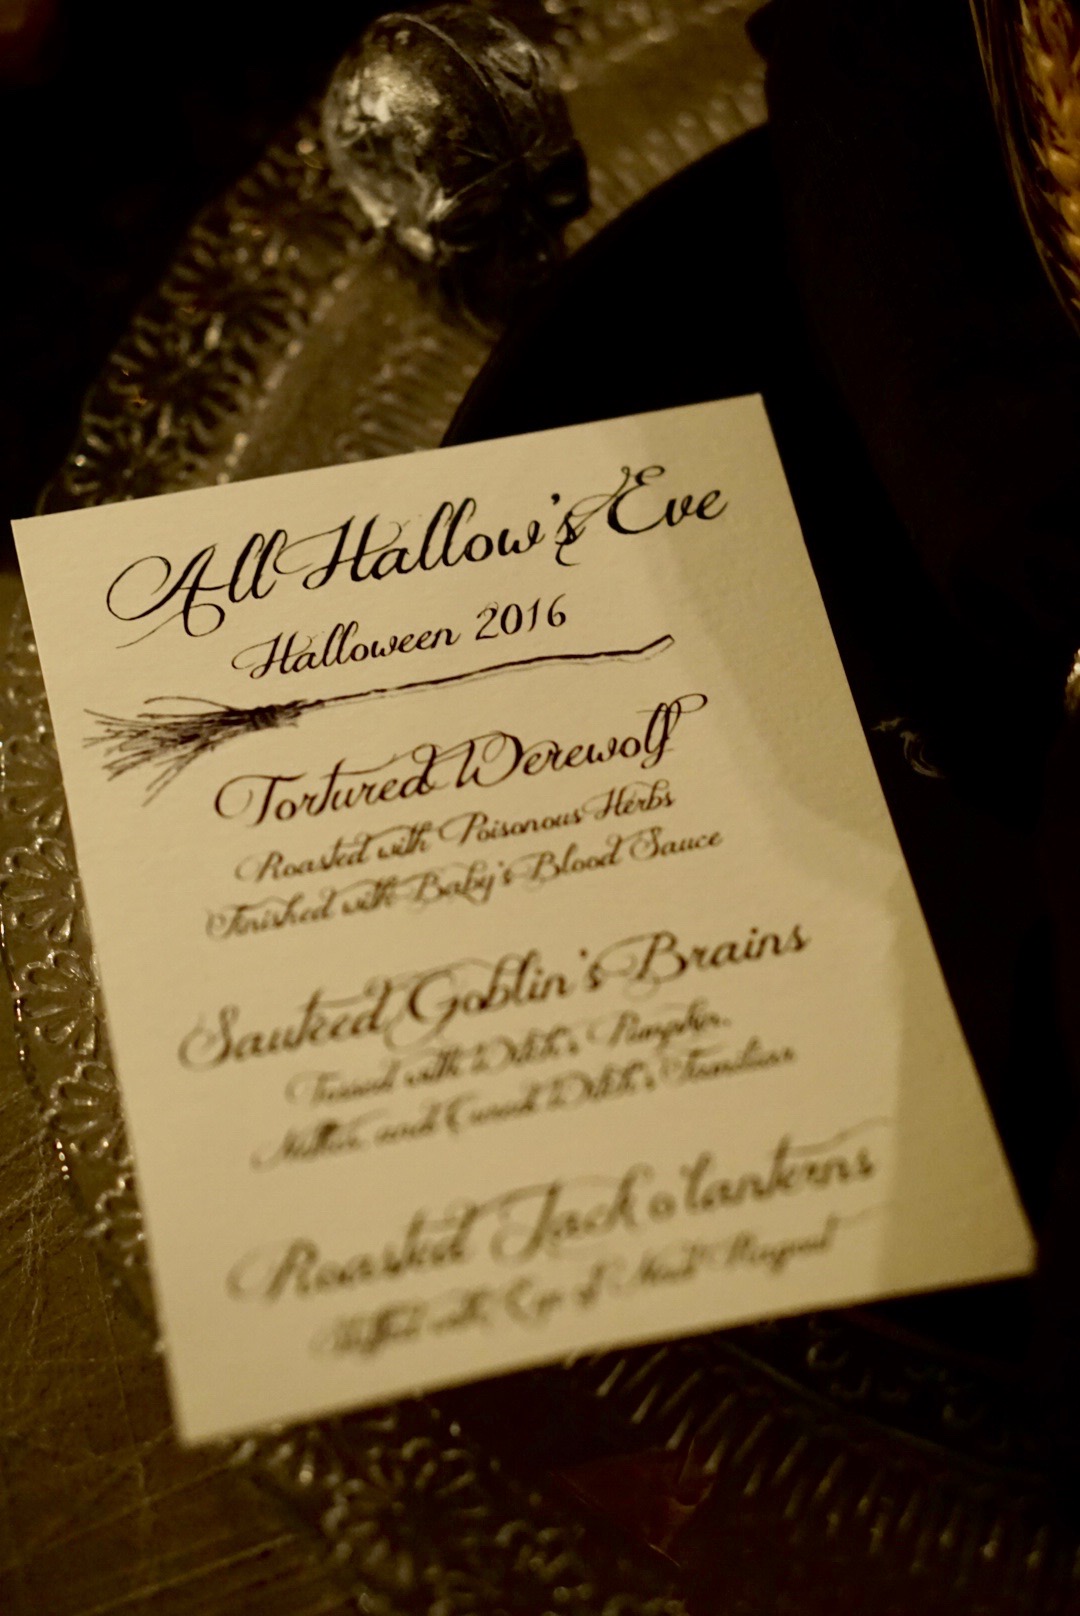 All Hallow's Eve
Halloween 2016
Tortured Werewolf
Roasted with Poisonous Herbs
Finished with Baby's Blood Sauce
Sauteed Goblin's Brains
Tossed with Witch's Pumpkin,
and Witch's Familiars
Roasted Jack o'lanterns
Stuffed with Eye of Maggot